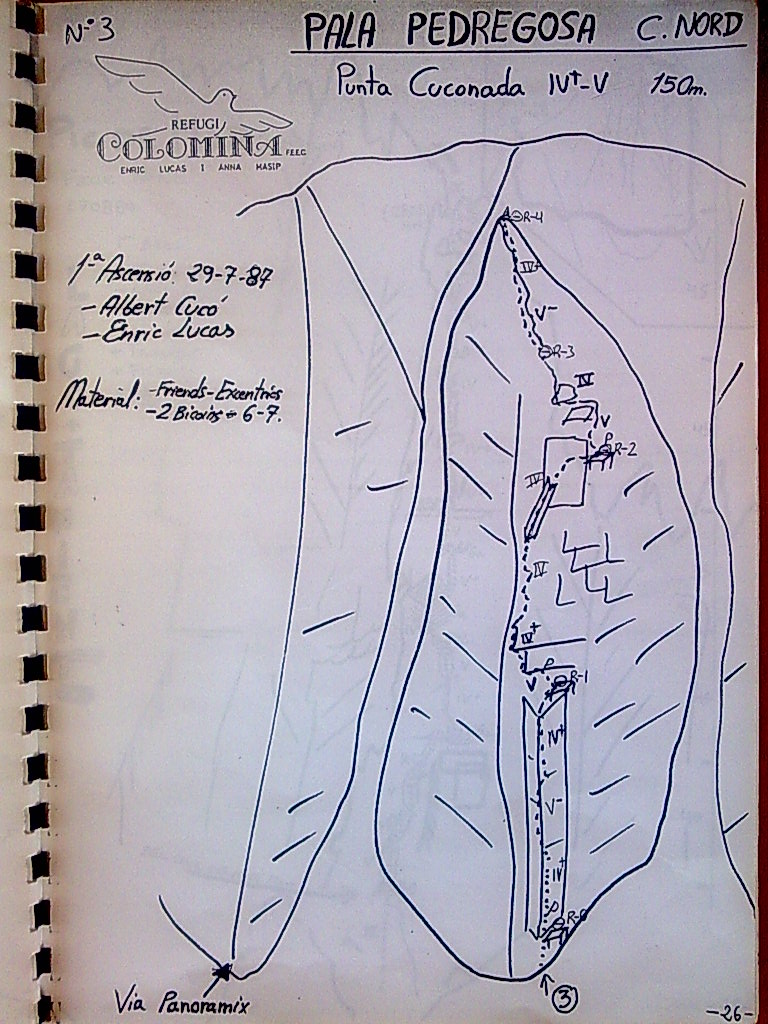 Nº 3
PALA PEDREGOSA C. NORD
Punta Cuconada IV+-V 150m.
REFUGI
COLOMINA F.E.E.C
ENRIC LUCAS I ANNA MASIP
1ª Ascensió: 29-7-87
- Albert Cucó
- Enric Lucas
Material: - Friends - Excentrics
- 2 Bicoins = 6-7.
R-4
IV+
V-
R-3
IV
V
P
R-2
IV
IV
IV+
P
V
R-1
IV+
V-
IV+
P
R-0
3
Via Panoramix
-26-